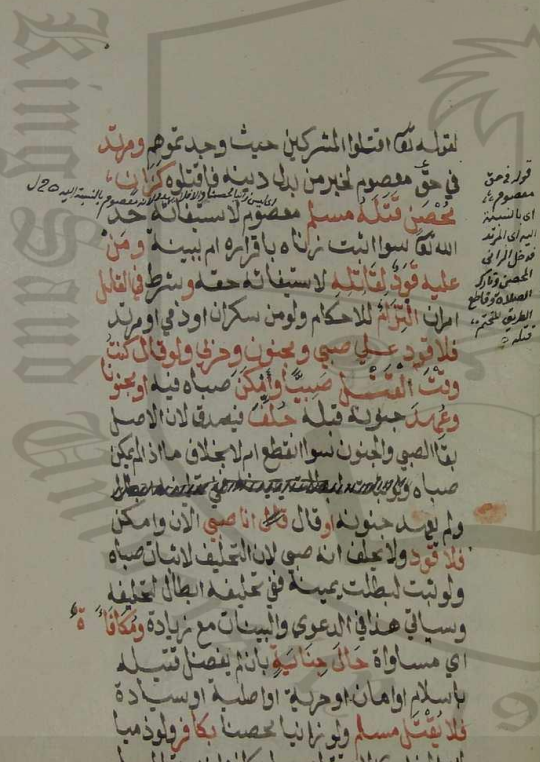 لقوله تعا اقتلوا المشركين حيث وجدتموهم ومرتد
في حق معصوم لخبر من بدل دينه فاقتلوه كزان
محصن قتله مسلم معصوم لاستيفائه حد
الله تعا سوا اثبت زناه باقراره ام ببينة ومن
عليه قود لقاتله لاستيفائه حقه وشرط في القاتل
امران التزام للاحكام ولو من سكران او ذمي او مرتد
فلا قود على صبي ومجنون وحربي ولو قال كنت
وقت القتل صبيا وامكن صباه فيه او مجنونا
وعهد جنونه قبله حلف فيصدق لان الاصل
بقا الصبي والجنون سوا انقطع ام لا بخلاف ما اذا لم يمكن
صباه
ولم يعهد جنونه او قال انا صبي الآن وامكن
فلا قود ولا يحلف انه صبي لان التحليف لاثبات صباه
ولو ثبت لبطلت يمينه ففي تحليفه ابطال لتحليفه
وسياتي هذا في الدعوى والبينات مع زيادة ومكافأة
اي مساواة حال جناية بان لم يفضل قتيله
باسلام او امان او حرية او اصلية او سيادة
فلا يقتل مسلم ولو زانيا محصنا بكافر ولو ذميا
قوله في حق
معصوم
اي بالنسبة
اليه اي المرتد
فدخل الزاني
المحصن وتارك
الصلاة وقاطع
الطريق المتحتم
قتله
King Saud University